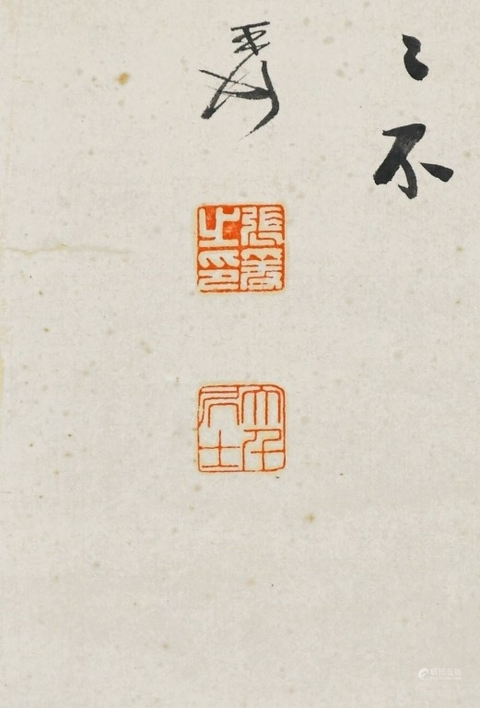 〻不
爰
張爰
之印
大千
居士